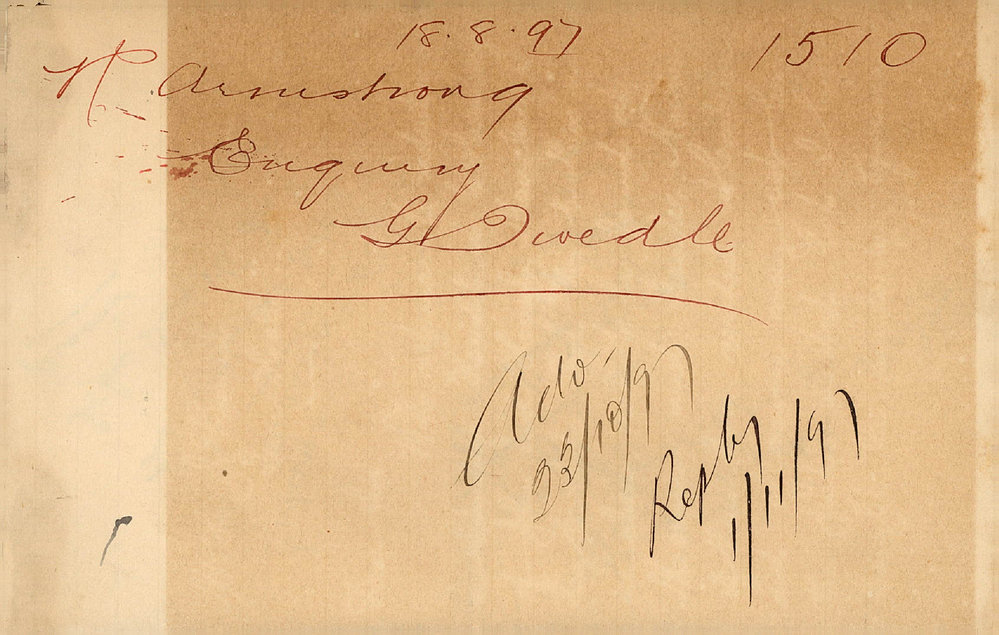 18.8.97 1510
R Armstrong
Enquiry
G Dwedle
Ado.
23/10/97
Reply
1/11/97